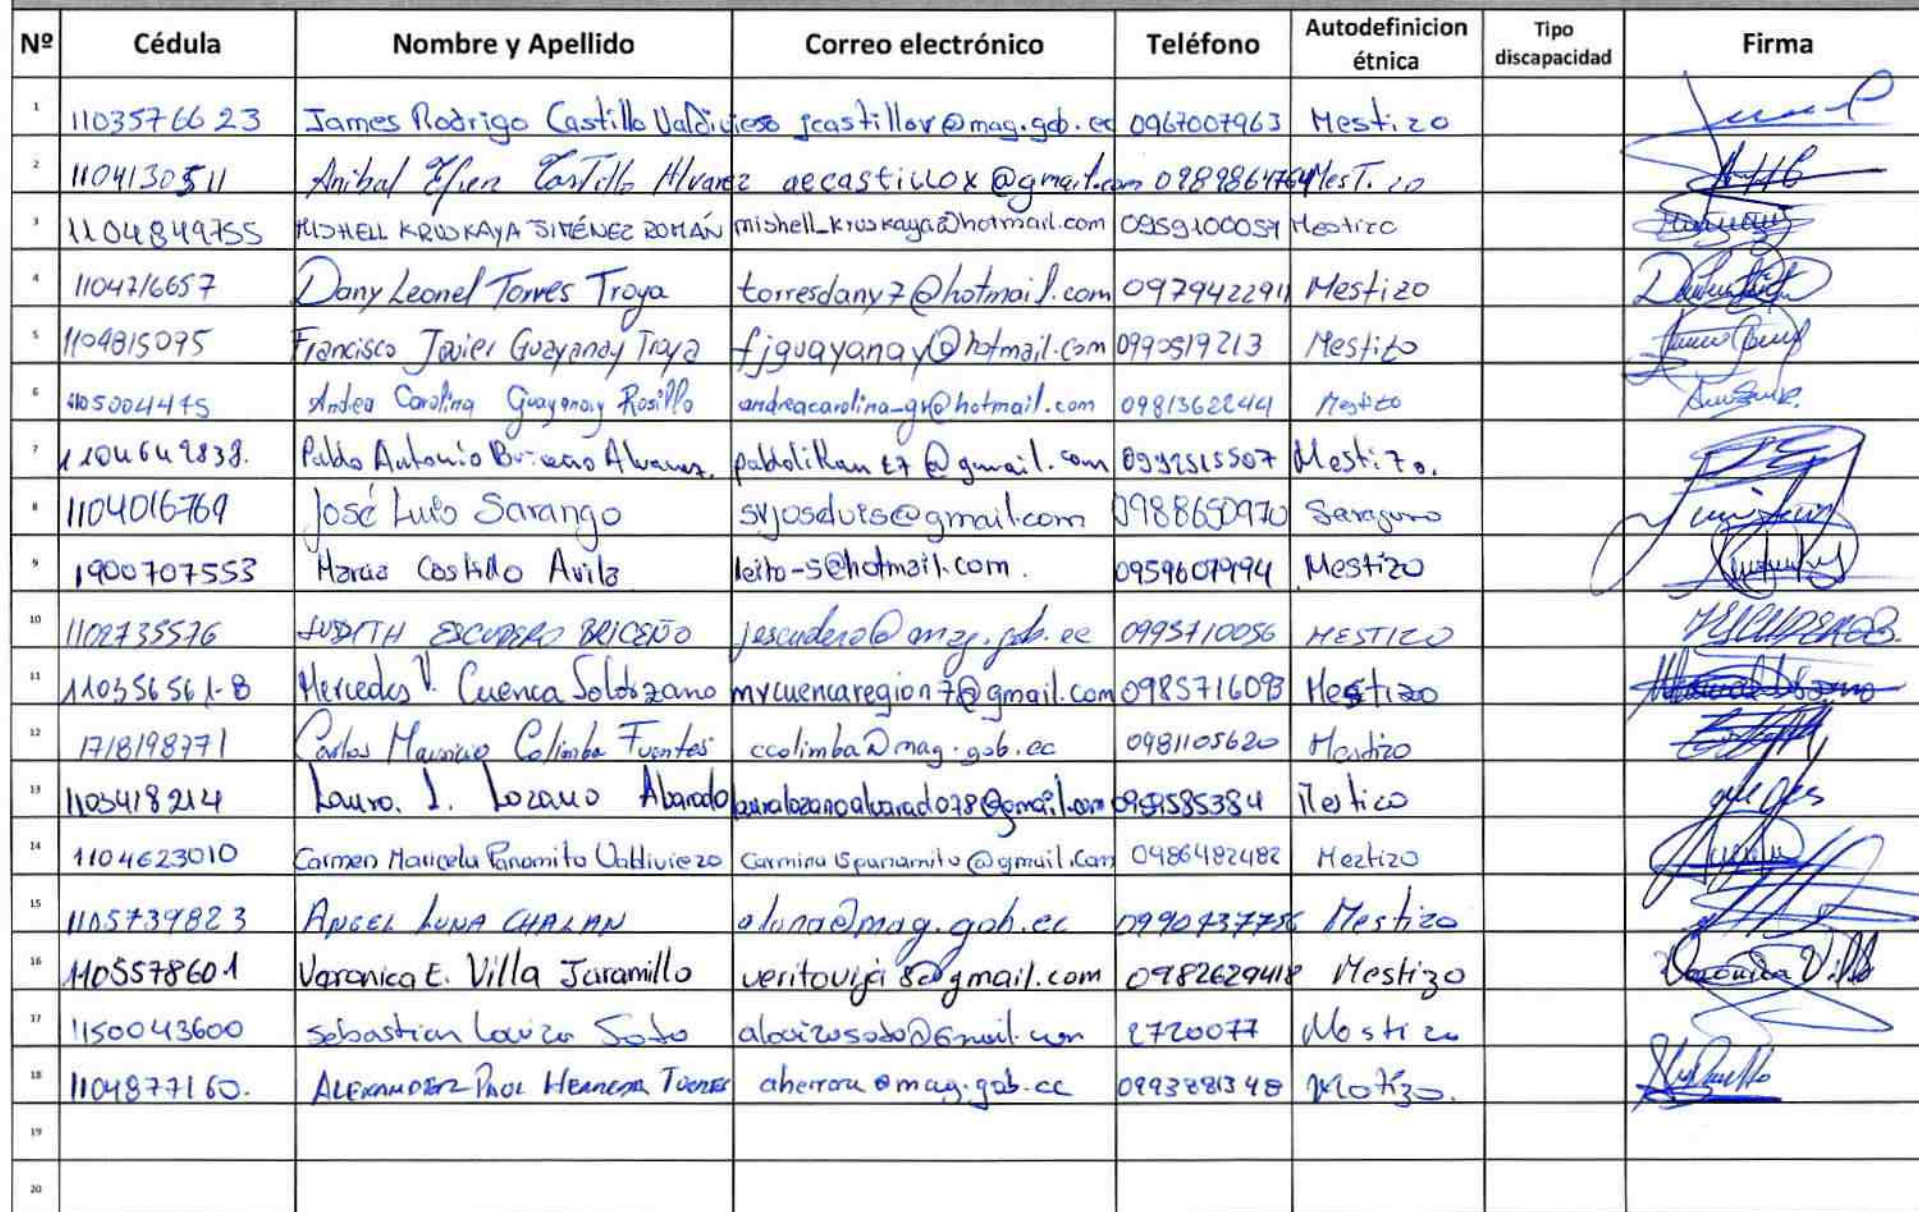 Nº Cédula Nombre y Apellido Correo electrónico Teléfono Autodefinicion étnica Tipo discapacidad Firma
1 1103576623 James Rodrigo Castillo Valdivieso jcastillov@mag.gob.ec 0967007963 Mestizo
2 1104130511 Anibal Efren Castillo Alvarez aecastillox@gmail.com 0989864764 Mestizo
3 1104849755 MISHELL KRUSKAYA JIMÉNEZ ROMÁN mishell_kruskaya@hotmail.com 0959100059 Mestizo
4 1104716657 Dany Leonel Torres Troya torresdany7@hotmail.com 0979422911 Mestizo
5 1104815095 Francisco Javier Guayanay Troya fjguayanay@hotmail.com 0990519213 Mestizo
6 1105004475 Andrea Carolina Guayanay Rosillo andreacarolina-gr@hotmail.com 0981362244 Mestizo
7 1104649838. Pablo Antonio Briceño Alvarez. @gmail.com 0992515507 Mestizo.
8 1104016769 José Luis Sarango svjoseluis@gmail.com 0988650970 Saraguro
9 1900707553 Maria Castillo Avila leito-s@hotmail.com. 0959607994 Mestizo
10 1102735576 JUDITH ESCUDERO BRICEÑO jescudero@mag.gob.ec 0995710056 MESTIZO
11 110356561-8 Mercedes V. Cuenca Solorzano mvcuencaregion7@gmail.com 0985716093 Mestizo
12 1718198771 Carlos Mauricio Colimba Fuentes ccolimba@mag.gob.ec 0981105620 Mestizo
13 1103418214 Lauro. I. Lozano Alvarado laurolozanoalvarado078@gmail.com Mestico
14 1104623010 Carmen Maricela Panamito Valdiviezo 0986482482 Meztizo
15 1105739823 ANGEL LUNA CHALAN aluna@mag.gob.ec 0990737756 Mestizo
16 1105578601 Veronica E. Villa Jaramillo veritovija8@gmail.com 0982629418 Mestizo Veronica Villa
17 1150043600 Sebastian Loaiza Soto 2720077 Mestizo
18 1104877160. ALEXANDER PAUL HERRERA TORRES aherrera@mag.gob.ec 0993881348 Mestizo.
19
20